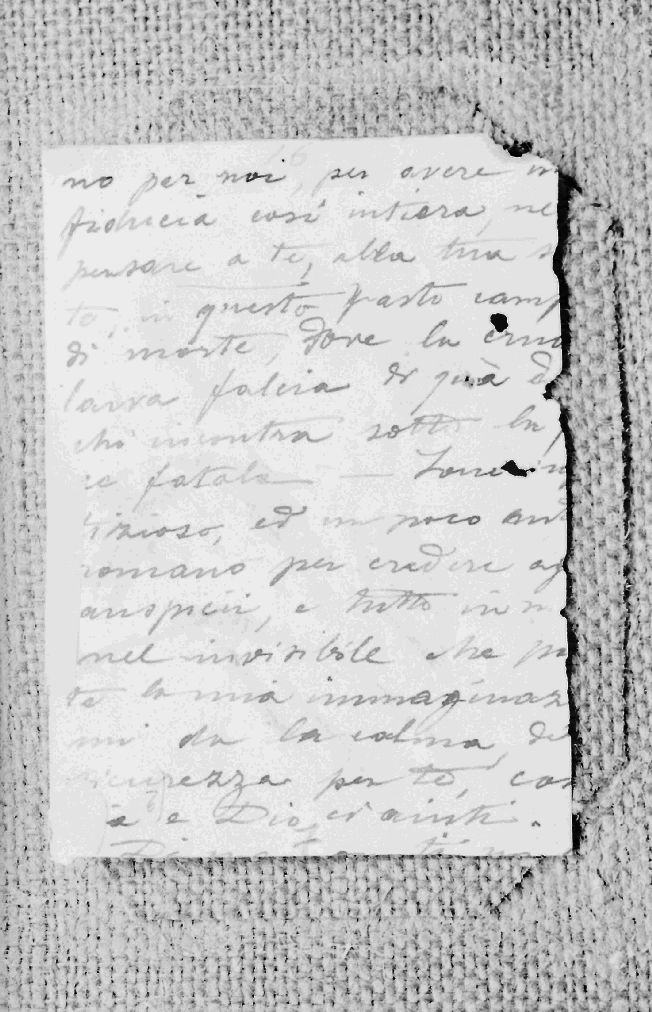 no per noi, per avere
fiducia così intiera, ne
pensare a te, alla tua s
to, in questo vasto camp
di morte, dove la cru
larva falcia di quà d
chi incontra sotto la
ce fatale —
tizioso, ed un poco ant
romano per credere ag
auspicii, e tutto in m
nel invisibile che pa
te la mia immaginaz
mi da la calma, de
sicurezza per te, cos
ia e Dio ci aiuti.